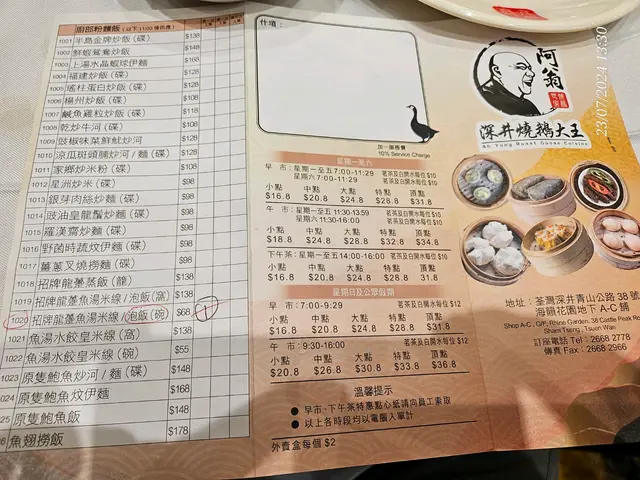 廚部粉麵飯 (以下11:00後供應)
1001 半島金牌炒飯(碟) $138
1002 鮮蝦鴛鴦炒飯 $148
1003 上湯水晶蝦球伊麵 $168
1004 福建炒飯(碟) $118
1005 瑤柱蛋白炒飯(碟) $128
1006 楊州炒飯(碟) $108
1007 鹹魚雞粒炒飯(碟) $118
1008 乾炒牛河(碟) $108
1009 豉椒味菜鮮魷炒河 $128
1010 涼瓜斑頭腩炒河/麵(碟) $128
1011 家鄉炒米粉(碟) $108
1012 星洲炒米(碟) $98
1013 銀芽肉絲炒麵(碟) $98
1014 豉油皇龍鬚炒麵(碟) $98
1015 羅漢齋炒麵(碟) $98
1016 野菌時蔬炆伊麵(碟) $98
1017 薑蔥叉燒撈麵(碟) $98
1018 招牌龍躉蒸飯(籠) $138
1019 招牌龍躉魚湯米線/泡飯(窩) $138
1020 招牌龍躉魚湯米線/泡飯(碗) $68 1
1021 魚湯水餃皇米線(窩) $138
1022 魚湯水餃皇米線(碗) $55
1023 原隻鮑魚炒河/麵(碟) $148
1024 原隻鮑魚炆伊麵 $168
25 原隻鮑魚飯 $148
26 魚翅撈飯 $178
什項:
加一服務費
10% Service Charge
星期一至六
早 市:星期一至五7:00-11:29 茗茶及白開水每位 $10
星期六7:00-11:29 茗茶及白開水每位 $10
小點 中點 大點 特點 頂點
$16.8 $20.8 $24.8 $28.8 $31.8
午 市:星期一至五11:30-13:59 茗茶及白開水每位 $10
星期六11:30-16:00 茗茶及白開水每位 $10
小點 中點 大點 特點 頂點
$18.8 $24.8 $28.8 $32.8 $34.8
下午茶:星期一至五14:00-16:00 茗茶及白開水每位 $10
小點 中點 大點 特點 頂點
$16.8 $20.8 $24.8 $28.8 $31.8
星期日及公眾假期
早 市:7:00-9:29 茗茶及白開水每位 $12
小點 中點 大點 特點 頂點
$16.8 $20.8 $24.8 $28.8 $31.8
午 市:9:30-16:00 茗茶及白開水每位 $12
小點 中點 大點 特點 頂點
$20.8 $26.8 $30.8 $33.8 $36.8
溫馨提示
● 早市、下午茶特惠點心紙請向員工索取
● 以上各時段均以電腦入單計
外賣盒每個 $2
阿翁
深井燒鵝大王
Ah Yung Roast Goose Cuisine
地址:荃灣深井青山公路38號
海韻花園地下A-C舖
Shop A-C, G/F, Rhine Garden, 38 Castle Peak Ro
Sham Tseng, Tsuen Wan
訂座電話 Tel:2668 2778
傳真 Fax:2668 2966
23/07/2024 13:30